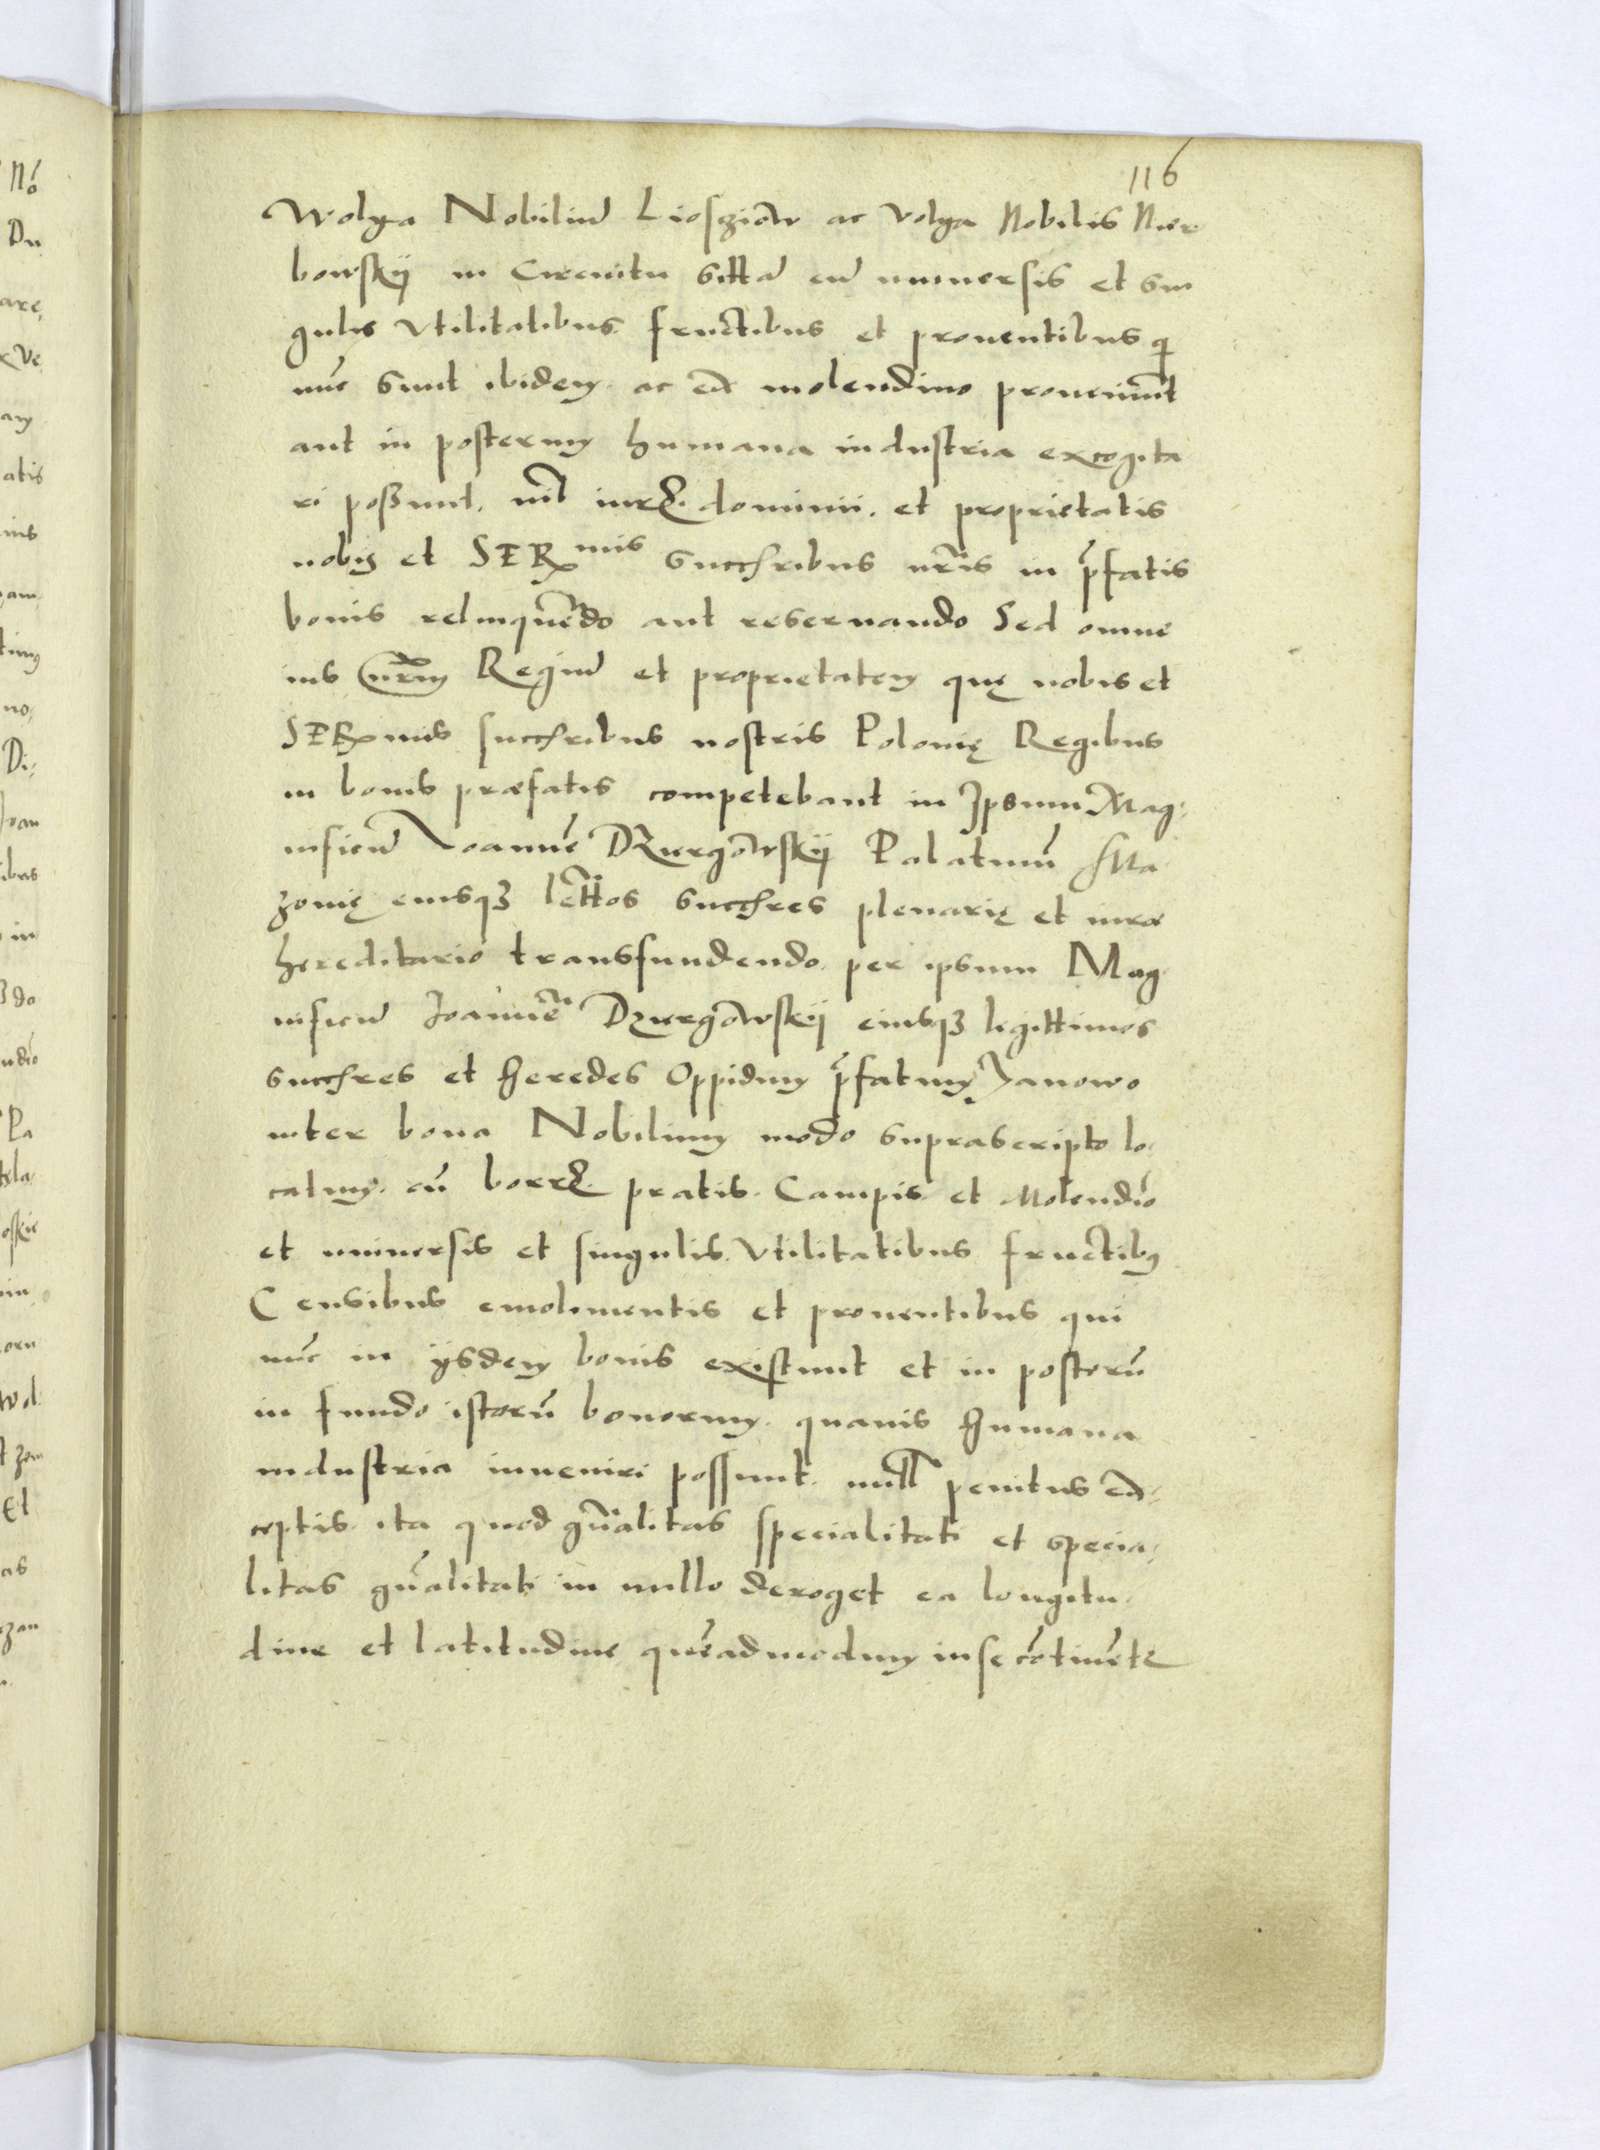 116
Wolya Nobiliũ Lioszów ac volya Nobilis Nier
bowskÿ in Circuitu sittã cũ uniuersis et sin
gulis vtilitatibus fructibus et prouentibus q̃
nũc sunt ibidem ac eꝺ molendino proueniũnt
aut in posterum humana industria excogita
ri possunt, nil iurꝭ. dominii. et proprietatis
nobis et SERmis succſribus nr̃is in p̃fatis
bonis relinquẽdo aut reseruando Sed omne
ius nr̃um Regiũ et proprietatem quę nobis et
SERmis succſribus nostris Polonię Regibus
in bonis præfatis competebant in Ipsum Mag
nificũ Joannẽ DZiergowskÿ Palatinũ Ma
zouię eiusqꝫ lẽttos succſres plenarię et iure
hereditario transfundendo. per ipsum Mag
nificũ Joannẽ Dziergowskÿ eiusqꝫ legittimos
succſres et heredes Oppidum p̃fatum Janowo
inter bona Nobilium modo suprascripto lo
catum. cũ borrꝭ. pratis. Campis et Molendĩo
et uniuersis et singulis. vtilitatibus fructibus
Censibus emolimentis et prouentibus qui
nũc in ÿsdem bonis existunt et in posterũ
in fundo istorũ bonorum. quauis humana
industria inueniri possunt. null penitus eꝺ
ceptis. ita quod gñalitas specialitati et specia
litas gñalitati in nullo deroget ea longitu
dine et latitudine quẽadmodum in se cõtinẽtꝛ